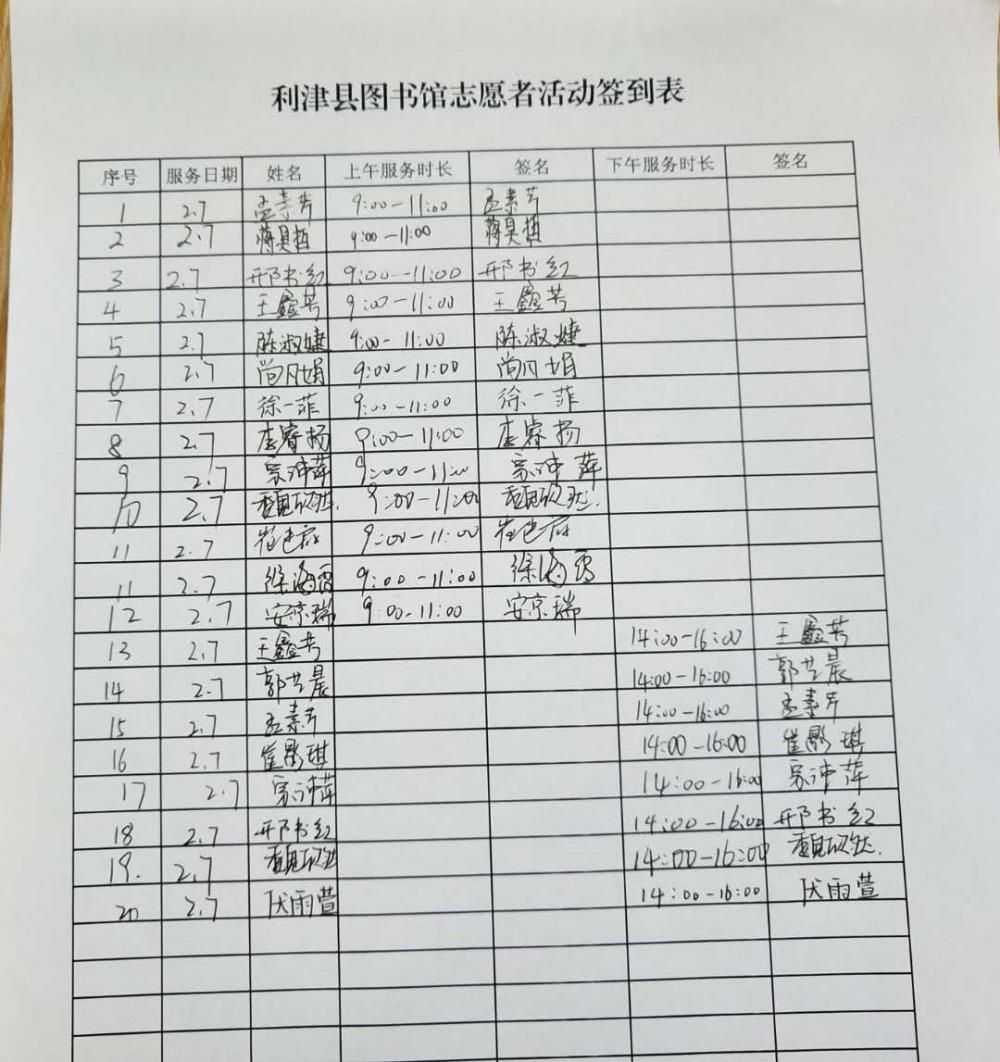 利津县图书馆志愿者活动签到表
序号 服务日期 姓名 上午服务时长 签名 下午服务时长 签名
1 2.7 孟素芳 9:00-11:00 孟素芳
2 2.7 蒋昊哲 9:00-11:00 蒋昊哲
3 2.7 邢书红 9:00-11:00 邢书红
4 2.7 王鑫芳 9:00-11:00 王鑫芳
5 2.7 陈淑婕 9:00-11:00 陈淑婕
6 2.7 尚凡娟 9:00-11:00 尚凡娟
7 2.7 徐一菲 9:00-11:00 徐一菲
8 2.7 李睿扬 9:00-11:00 李睿扬
9 2.7 9:00-11:00
10 2.7 魏欣然. 9:00-11:00 魏欣然.
11 2.7 9:00-11:00
11 2.7 徐海雪 9:00-11:00 徐海雪
12 2.7 安京瑞 9:00-11:00 安京瑞
13 2.7 王鑫芳 14:00-16:00 王鑫芳
14 2.7 郭芸晨 14:00-16:00 郭芸晨
15 2.7 孟素芳 14:00-16:00 孟素芳
16 2.7 崔影琪 14:00-16:00 崔影琪
17 2.7 14:00-16:00
18 2.7 邢书红 14:00-16:00 邢书红
19. 2.7 魏欣然 14:00-16:00 魏欣然.
20 2.7 伏雨萱 14:00-16:00 伏雨萱